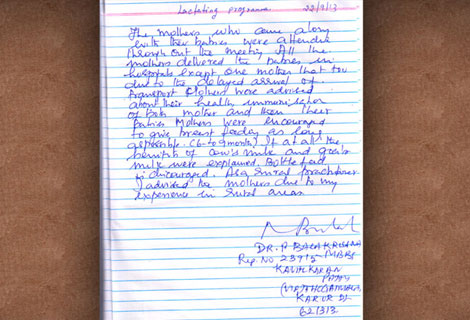 Lactating programme 22/9/13
The mothers who came along
with their babies were attended
through out the meeting All the
mothers delivered the babies in
hospitals except one mother that too
due to the delayed arrival of
transport Mothers were advised
about their health, immunisation
of Both mother and then their
Babies Mothers were encouraged
to give breast feeding as long
as possible (6 to 9 months) If at all the
benefits of cow's milk and goat's
milk were explained. Bottle feed
is discouraged. As a rural practitioner
I advised the mothers due to my
experience in rural areas
DR. P BALAKRISHNA
Reg. No 23915 MBBS
KARUR DT
621313